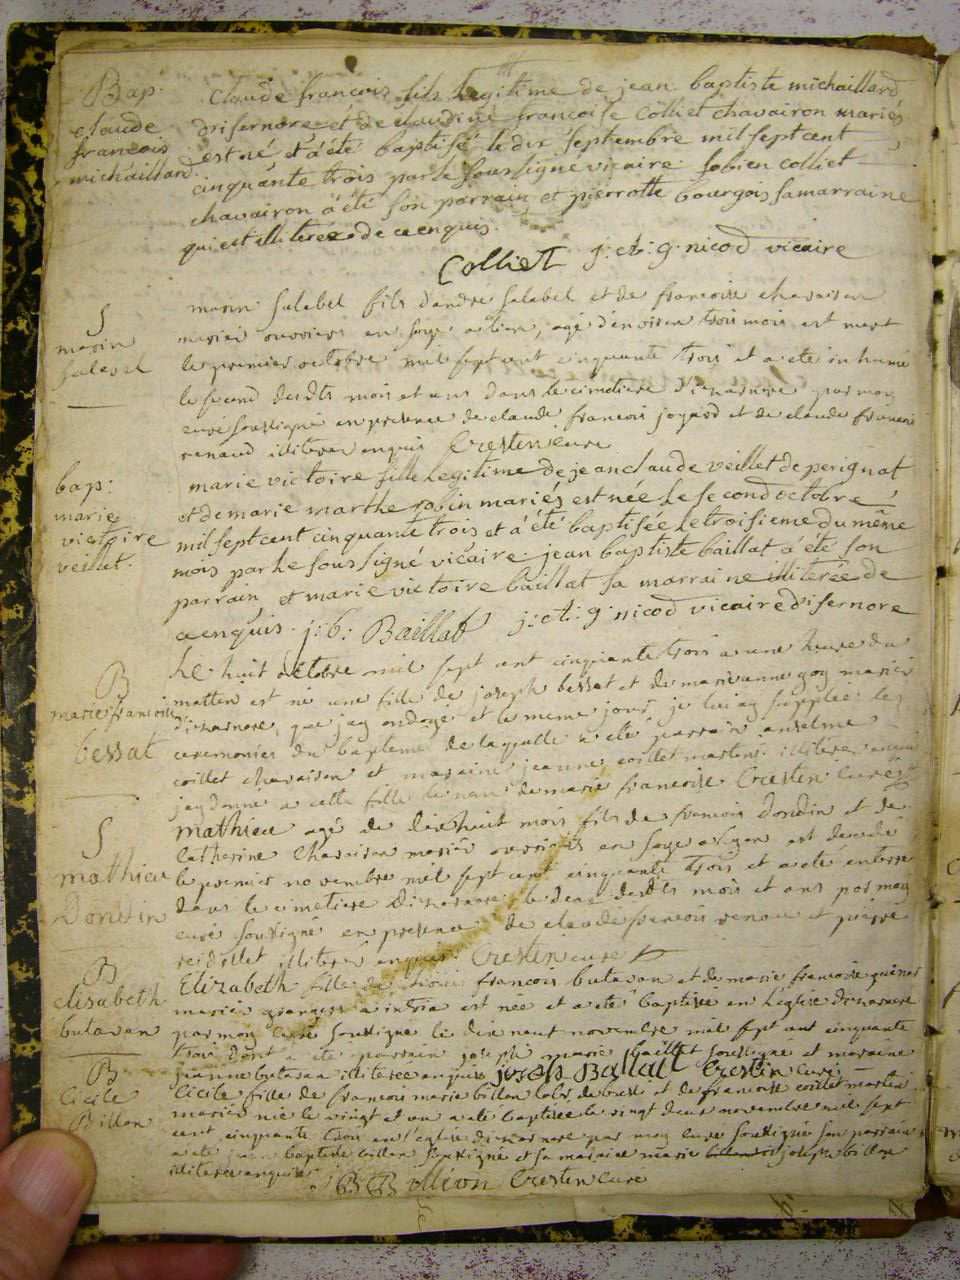 Bap.
claude
francois
michaillard.
claude francois fils legitime de jean baptiste michaillard
disernore et de claudine francoise Colliet chavairon mariés
est né et à été baptisé le dix septembre mil sept cent
cinquante trois par le soussigné vicaire. fabien colliet
chavairon à été son parrain et pierrotte bourgois sa marraine
qui est illiteree de ce enquis.
Colliet j: ct: g. nicod vicaire
S
marin
salabel
marin salabel fils d'andré salabel et de francoise chavairon
mariés ouvriers en soye a lion, agé d'environ trois mois est mort
le premier octobre mil sept cent cinquante trois et a eté inhumé
le second desdts mois et an dans le cimetiere d'izarnore par moy
curé soussigné en presence de claude francois joyard et de claude francois
renaud illiterés enquis Crestin curé
bap:
marie
victoire
veillet.
marie victoire fille legitime de jean claude veillet de perignat
et de marie marthe robin mariés est née le second octobre
mil sept cent cinquante trois et à été baptisée le troisieme du même
mois par le soussigné vicaire. jean baptiste baillat à été son
parrain et marie victoire baillat sa marraine illiterée de
ce enquis. j: b: Baillat j: ct: g. nicod vicaire disernore
B
marie francoise
bessat
Le huit octobre mil sept cent cinquante trois a une heure du
matin est né une fille de joseph bessat et de marie anne goy mariés
d'izarnore, que jay ondoyé et le meme jour je luy ay supplée les
ceremonies du bapteme de laquelle a eté parrain anselme
coillet chavairon et maraine jeanne coillet martin illiterés enquis
jay donné a cette fille le nom de marie francoise Crestin curé
S
mathieu
Dondin
mathieu agé de dixhuit mois fils de francois dondin et de
Catherine chavairon mariés ouvriers en soye a lyon est decedé
le premier novembre mil sept cent cinquante trois et a eté enterré
dans le cimetiere d'izarnore le deux desdts mois et ans par moy
curé soussigné en presence de claude francois renau et pierre
illiterés enquis Crestin curé
B
elisabeth
butavan
Elizabeth fille de francois butavan et de marie francoise
mariés grangers a intria est née et a eté baptisée en l'église d'izarnore
par moy curé soussigné le dix neuf novembre mil sept cent cinquante
trois dont a eté parrain joseph marie baillat soussigné et maraine
jeanne butavan illiterée enquis joseph Ballat Crestin curé
B
Cicile
Billon
Cicile fille de francois marie billon et de francoise coillet martin
mariés née le vingt et un a eté baptisée le vingt deux novembre mil sept
cent cinquante trois en l'église d'izarnore par moy curé soussigné son parrain
a eté jean baptiste billon soussigné et sa maraine marie joseph billon
illiterée enquise B Billion Crestin curé